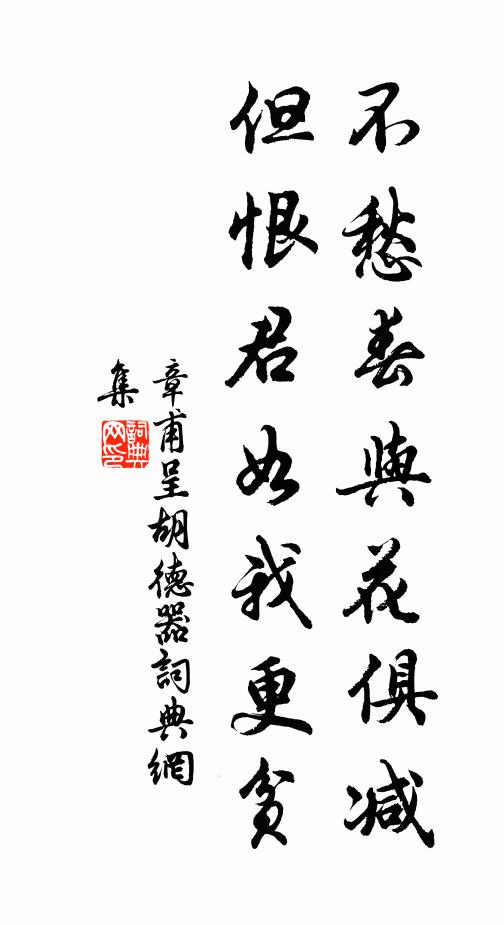 不愁春與花俱減
但恨君如我更貧
章甫呈胡德器詞典網
集
詞典
网印